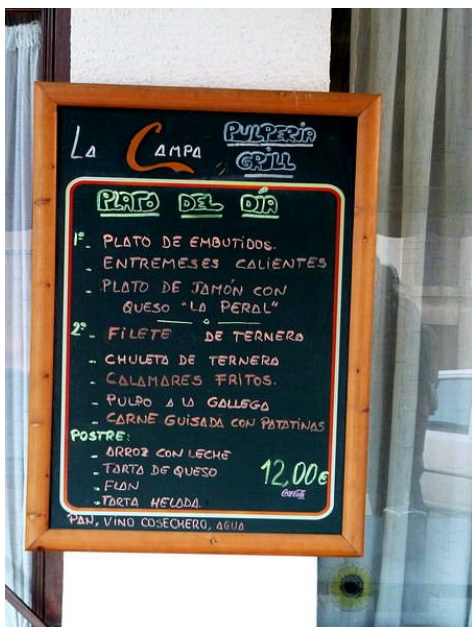 La Campa PULPERIA
GRILL
PLATO DEL DÍA
1º- PLATO DE EMBUTIDOS.
- ENTREMESES CALIENTES
- PLATO DE JAMÓN CON
QUESO "LA PERAL"
2º- FILETE DE TERNERA
- CHULETA DE TERNERA
- CALAMARES FRITOS.
- PULPO A LA GALLEGA
- CARNE GUISADA CON PATATINAS
POSTRE:
- ARROZ CON LECHE
- TARTA DE QUESO
- FLAN
- TARTA HELADA
12,00€
Coca-Cola
PAN, VINO COSECHERO, AGUA